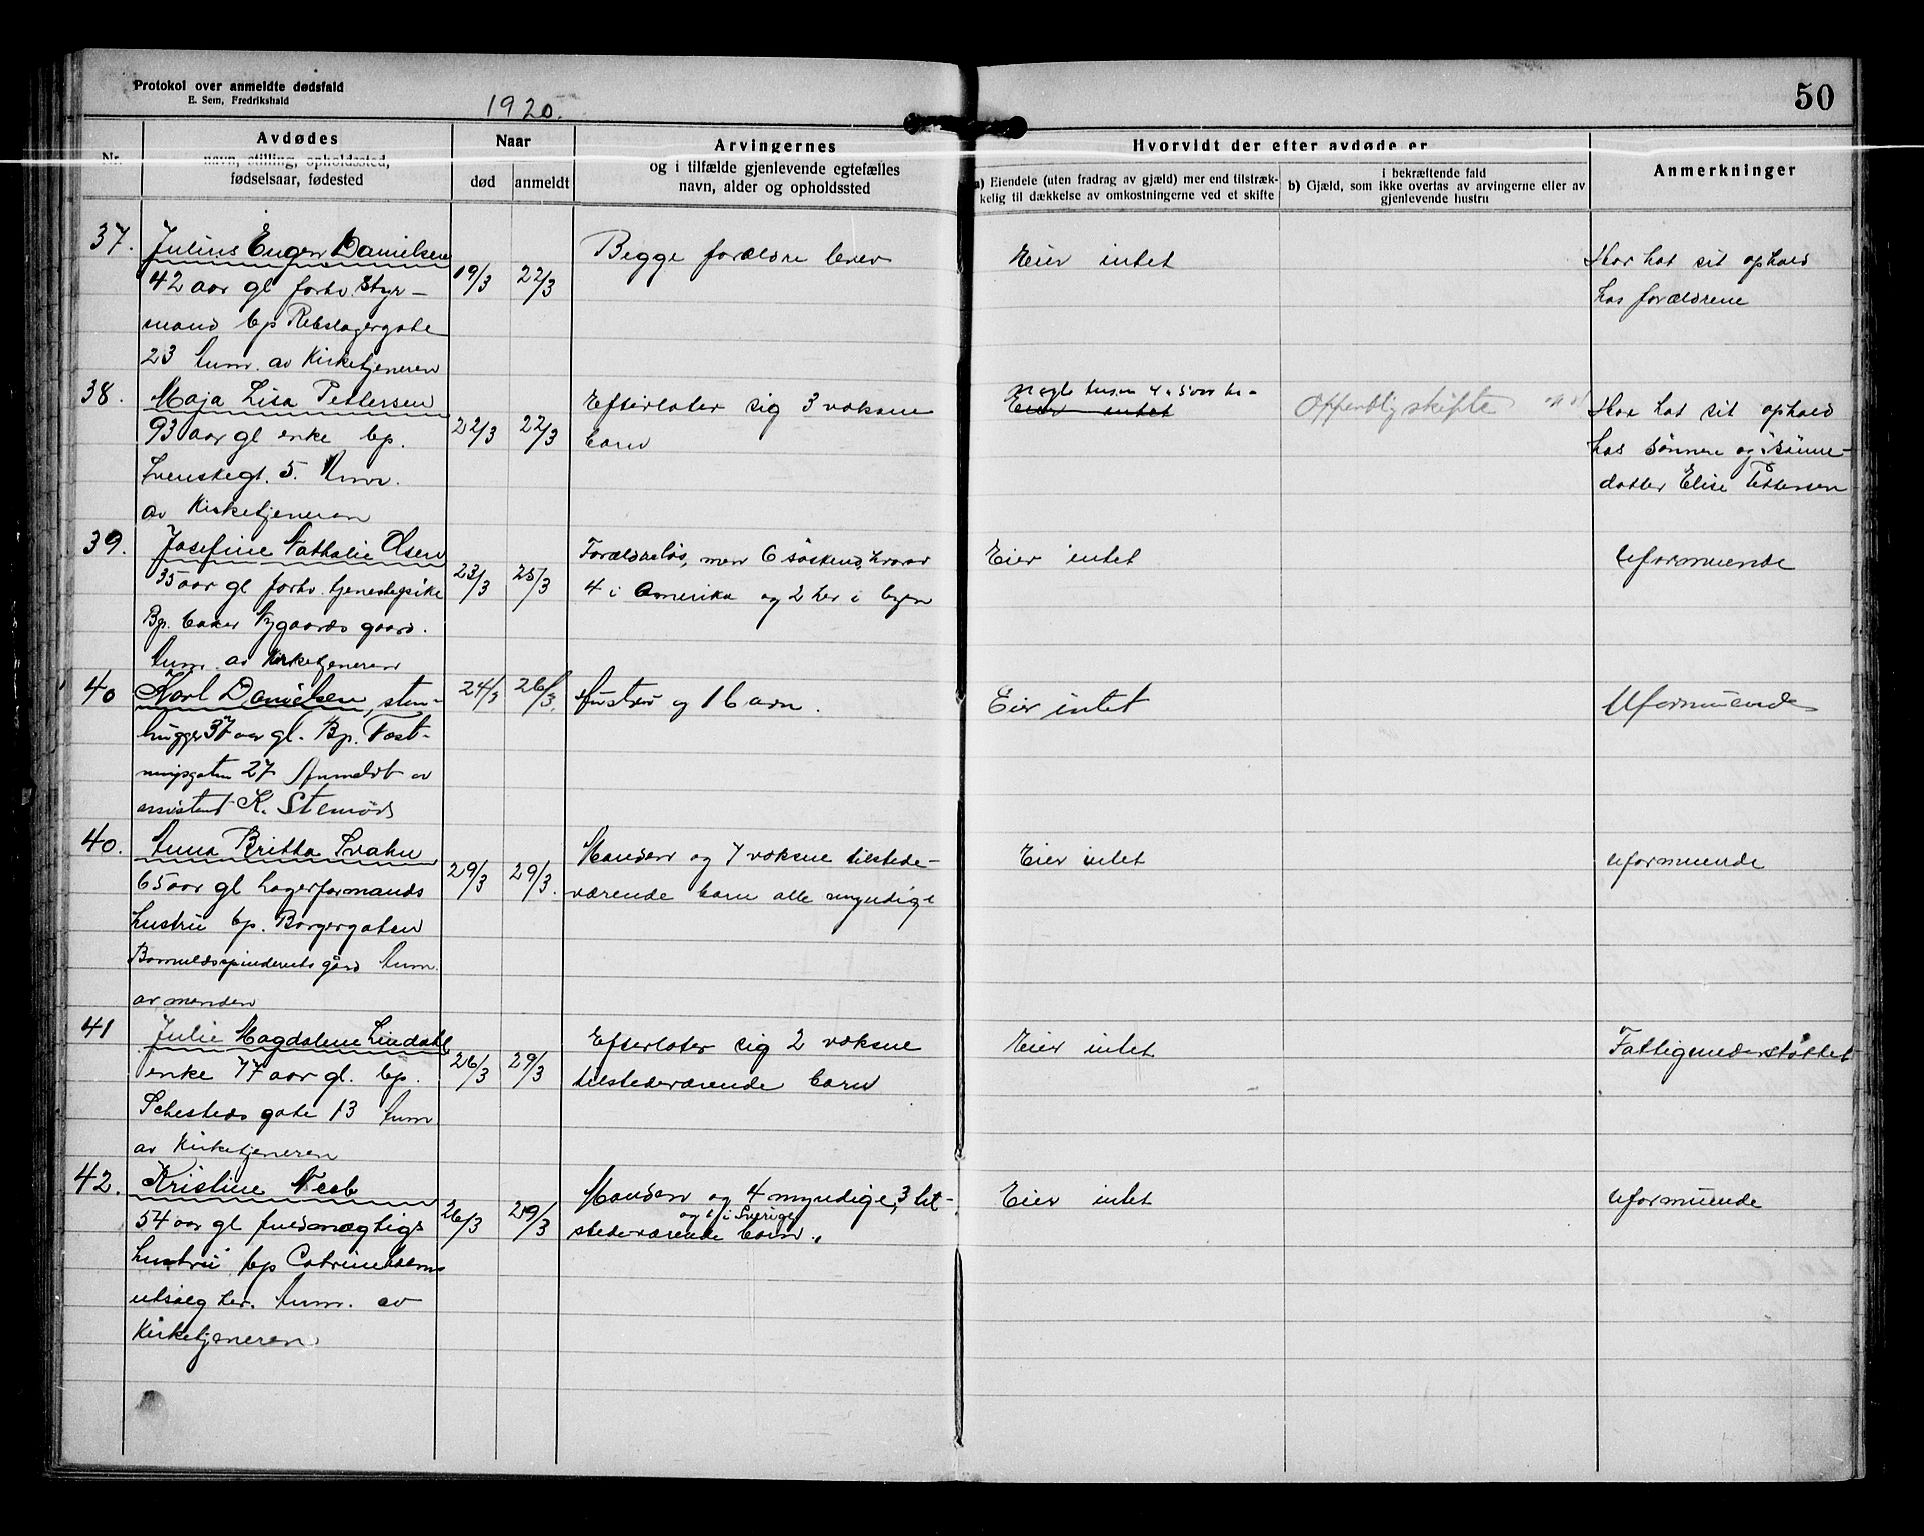 Protokol over anmeldte dødsfald
E. Sem, Fredrikshald
1920.
50
Nr.
Avdødes
navn, stilling, opholdssted,
fødselsaar, fødested
Naar
død
anmeldt
Arvingernes
og i tilfælde gjenlevende egtefælles
navn, alder og opholdssted
Hvorvidt der efter avdøde er
a) Eiendele (uten fradrag av gjæld) mer end tilstræk-
kelig til dækkelse av omkostningerne ved et skifte
i bekræftende fald
b) Gjæld, som ikke overtas av arvingerne eller av
gjenlevende hustru
Anmerkninger
37.
Julius Eugen Danielsen
42 aar gl forhv. styr-
mand bp Rebslagergate
23 Anm. av Kirketjeneren
19/3
22/3
Begge forældre lever
Eier intet
Har hat sit ophold
hos forældrene
38.
Maja Lisa Pettersen
93 aar gl enke bp.
Svenskegt. 5. Anm.
av Kirketjeneren
22/3
22/3
Efterlater sig 3 voksne
barn
Nogle tusen 4 a 5000 kr-
Eier intet
Offentlig skifte
Har hat sit ophold
hos sønnen og sønne-
datter Elise Pettersen
39.
Josefine Nathalie Olsen
35 aar gl forhv. tjenestepike
Bp. baker Nygaards gaard.
Anm. av Kirketjeneren
23/3
25/3
Forældreløs, men 6 søskend, hvorav
4 i Amerika og 2 her i byen
Eier intet
Uformuende
40
Karl Danielsen, sten-
hugger 37 aar gl. Bp. Fæst-
ningsgaten 27 Anmeldt av
assistent K. Stenrød
24/3
26/3.
Hustru og 1 barn.
Eier intet
Uformuende
40.
Anna Britta Svahn
65 aar gl lagerformands
hustru bp. Borgergaten
Bomuldsspinderiets gård Anm.
av manden
29/3
29/3.
Manden og 7 voksne tilstede-
værende barn alle myndige
Eier intet
Uformuende
41
Julie Magdalene Lindahl
enke 77 aar gl. bp.
Schesteds gate 13 Anm
av Kirketjeneren
26/3
29/3
Efterlater sig 2 voksne
tilstedeværende barn
Eier intet
Fattigunderstøttet
42.
Kristine Neeb
54 aar gl fuldmægtigs
hustru bp Catrineholms
utsalg her. Anm. av
Kirketjeneren
26/3
29/3
Manden og 4 myndige, 3 til-
og 1 i Sverige
stedeværende barn.
Eier intet
Uformuende